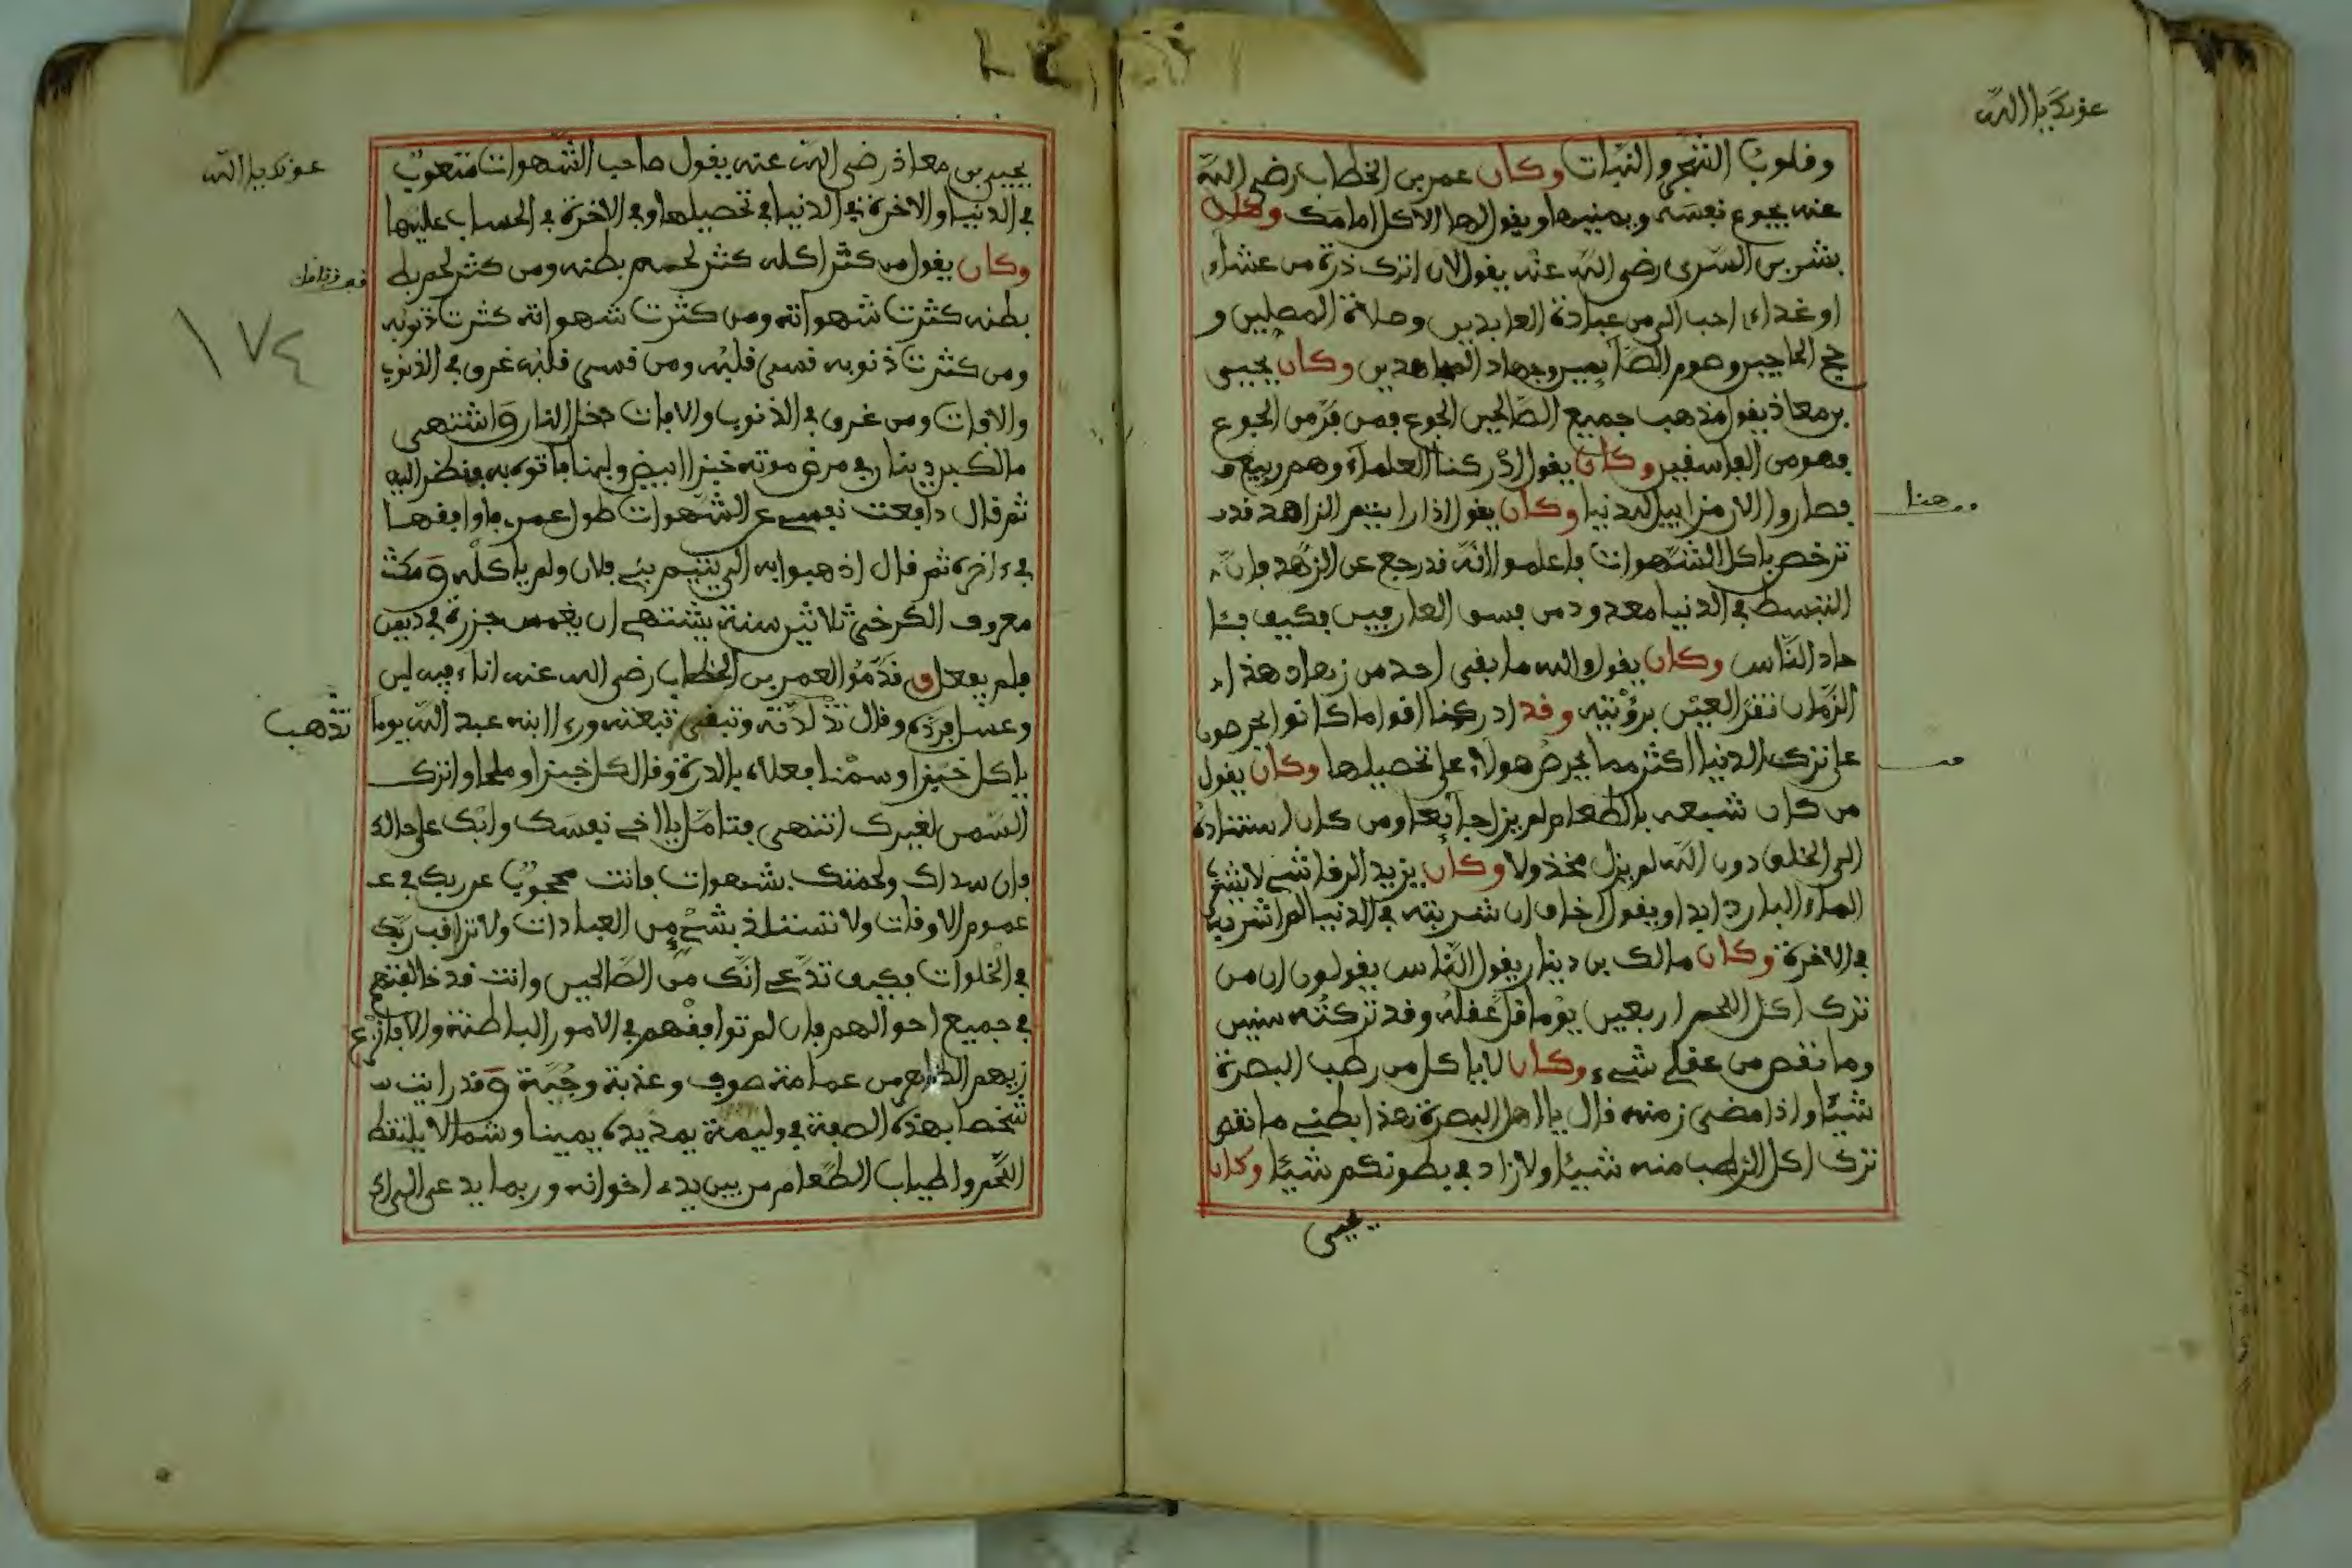 عونك يا الله
وقلوب الشجر والنبات وكان عمر بن الخطاب رضي الله
عنه يجوع نفسه ويمنيها ويقول لها الاكل امامك وكان
بشر بن السرى رضي الله عنه يقول لان اترك ذرة من عشاء
او غداء احب الي من عبادة العابدين وصلاة المصلين و
حج الحاجين وصوم الصائمين وجهاد المجاهدين وكان يحيى
بن معاذ يقول مذهب جميع الصالحين الجوع فمن فر من الجوع
فهو من الفاسقين وكان يقول ادركنا العلماء وهم ربيع
هنا
فصاروا الان مزابيل للدنيا وكان يقول اذا رايتم الزاهد قد
ترخص باكل الشهوات فاعلموا انه قد رجع عن الزهد فان
التبسط في الدنيا معدود من فسق العارفين فكيف بئا
حاد الناس وكان يقول والله ما بقى احد من زهاد هذا
الزمان تقر العين برؤيته وقد ادركنا اقواما كانوا يحرصون
على ترك الدنيا اكثر مما يحرص هولاء على تحصيلها وكان يقول
من كان شبعه بالطعام لم يزل جائعا ومن كان استناده
الى الخلق دون الله لم يزل مخذولا وكان يزيد الرقاشي لا يشرب
الماء البارد ابدا ويقول اخاف ان شربته في الدنيا لم اشربه
في الاخرة وكان مالك بن دينار يقول الناس يقولون ان من
ترك اكل اللحم اربعين يوما قل عقله وقد تركته سنين
وما نقص من عقلي شيء وكان لا ياكل من رطب البصرة
شيئا واذا مضى زمنه قال يا اهل البصرة هذا بطني ما نقص
ترك اكل الرطب منه شيئا ولا زاد في بطونكم شيئا وكان
يحيى
عونك يا الله
يحيى بن معاذ رضي الله عنه يقول صاحب الشهوات متعوب
في الدنيا والاخرة في الدنيا في تحصيلها وفي الاخرة في الحساب عليها
وكان يقول من كثر اكله كثر لحم بطنه ومن كثر لحم بط
بطنه كثرت شهواته ومن كثرت شهواته كثرت ذنوبه
١٧٤
ومن كثرت ذنوبه قسى قلبه ومن قسى قلبه غرق في الذنوب
والافات ومن غرق في الذنوب والافات دخل النار واشتهى
مالك بن دينار في مرض موته خبزا ابيض ولبنا فاتوه به فنظر اليه
ثم قال دافعت نفسي عن الشهوات طول عمري فاوافقها
في ءاخره ثم قال اذهبوا به الى يتيم بني فلان ولم ياكله ومكث
معروف الكرخي ثلاثين سنة يشتهي ان يغمس جزرة في دبس
فلم يفعل وقدموا لعمر بن الخطاب رضي الله عنه اناء فيه لبن
وعسل فرده وقال تذ لذته وتبقى تبعته ورءا ابنه عبد الله يوما
تذهب
ياكل خبزا وسمنا فعلاه بالدرة وقال كل خبزا وملحا واترك
السمن لغيرك انتهى فتامل يا اخي نفسك وابك على حالك
فان سداك ولحمتك شهوات فانت محجوب عن ربك في عـ
عموم الاوقات ولا تستلذ بشيء من العبادات ولا تراقب ربك
في الخلوات فكيف تدعي انك من الصالحين وانت قد خالفتهم
في جميع احوالهم فان لم توافقهم في الامور الباطنة والا فانزع
زيهم الظاهر من عمامة صوف وعذبة وجبة وقد رايت
شخصا بهذه الصفة في وليمة يمد يده يمينا وشمالا يلتقط
اللحم واطياب الطعام من بين يدي اخوانه وربما يدعى الى